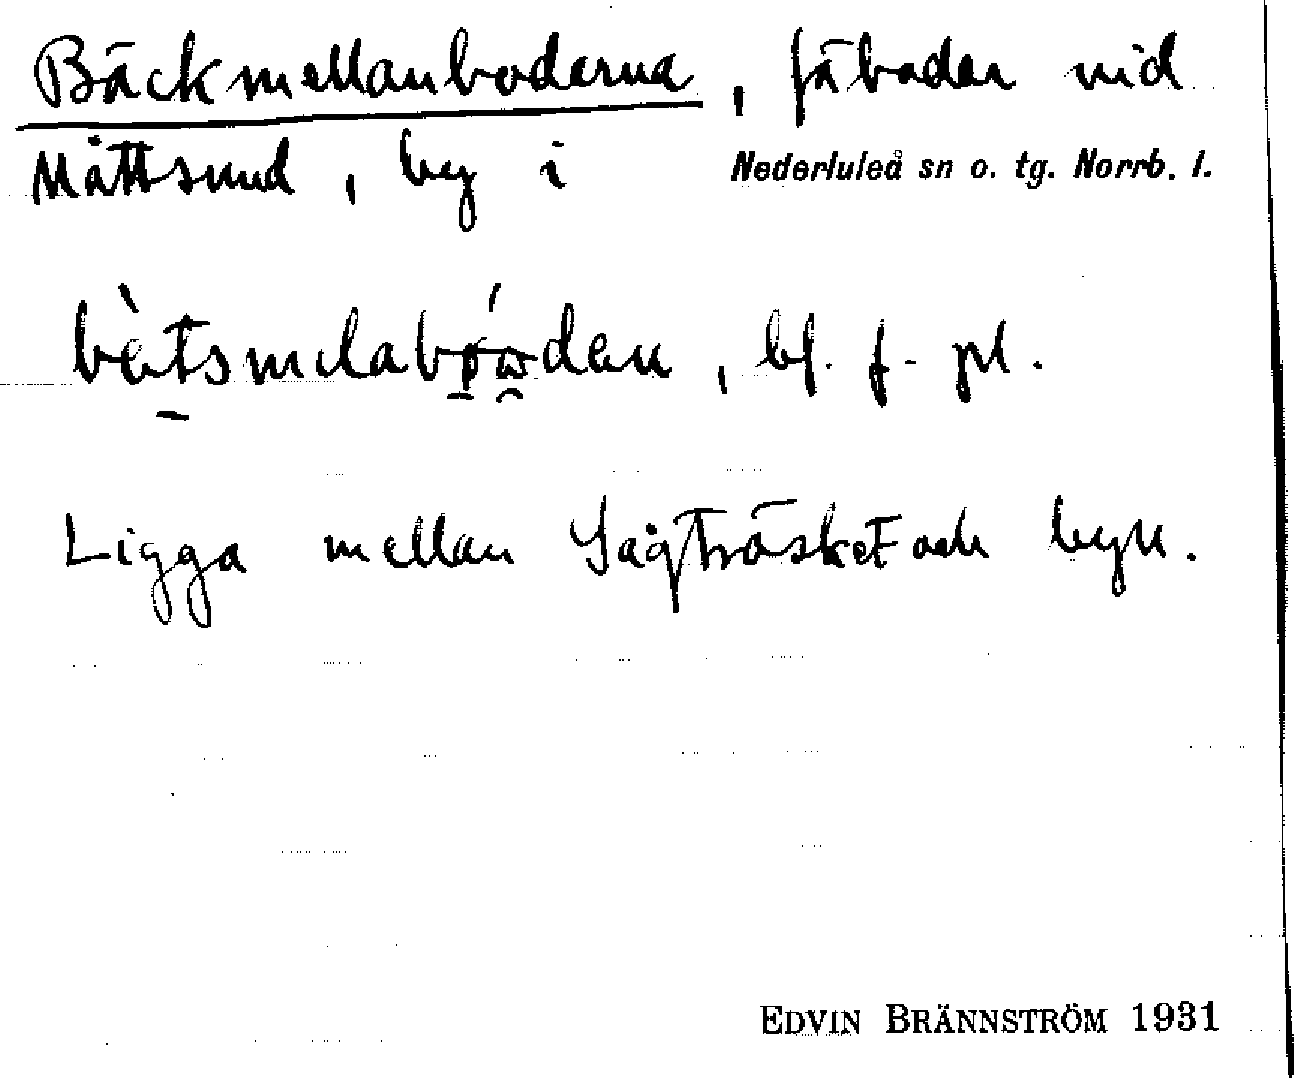 Bäckmellanboderna, fäbodar vid
Måttsund, by i Nederluleå sn o. tg. Norrb. l.
, bf. f. pl.
Ligga mellan Sågträsket och byn.
EDVIN BRÄNNSTRÖM 1931